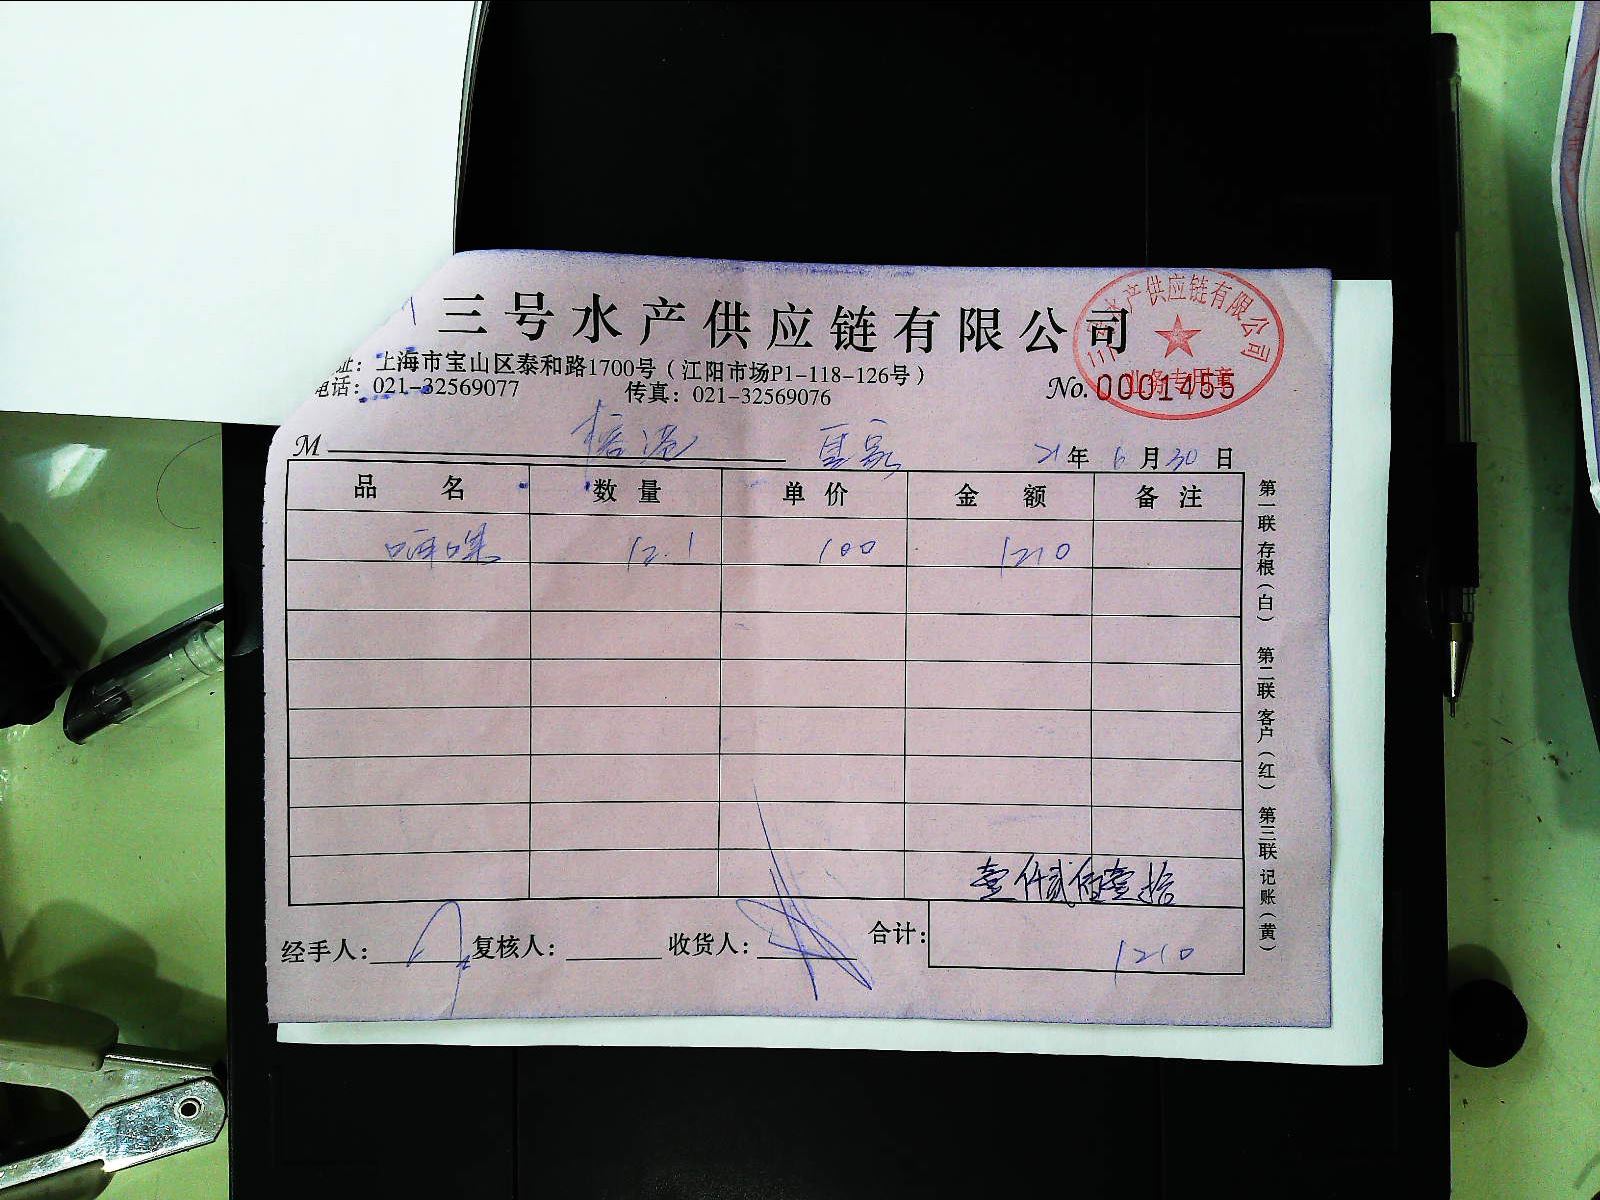 三号水产供应链有限公司
水产供应链有限公司
业务专用章
址：上海市宝山区泰和路1700号（江阳市场P1-118-126号）
电话：021-32569077 传真：021-32569076 No.0001455
M 21年6月30日
品名 数量 单价 金额 备注
12.1 100 1210
壹仟贰佰壹拾
经手人： 复核人： 收货人： 合计：1210
第一联 存根（白） 第二联 客户（红） 第三联 记账（黄）